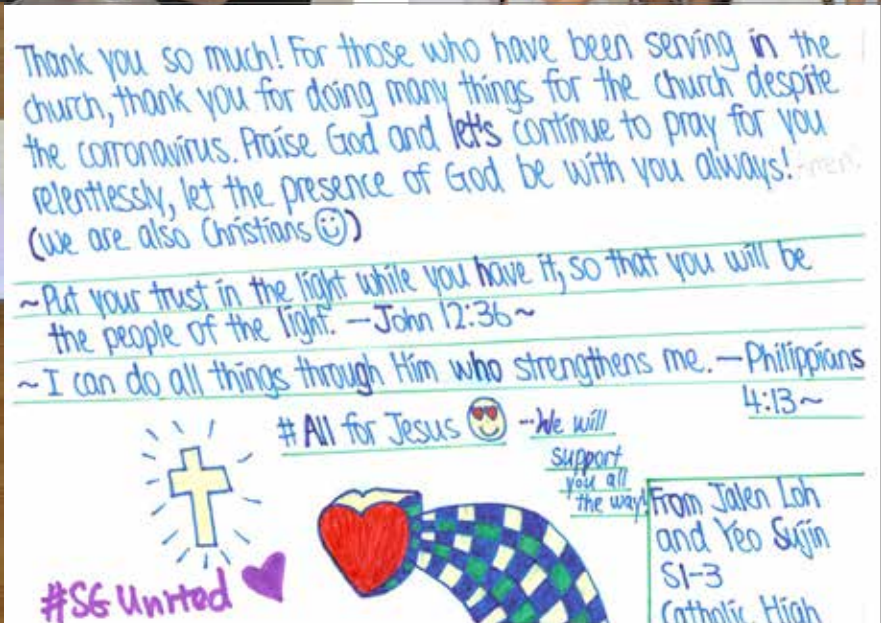 Thank you so much! For those who have been serving in the
church, thank you for doing many things for the church despite
the corronavirus. Praise God and let's continue to pray for you
relentlessly, let the presence of God be with you always!
(We are also Christians ☺)
~Put your trust in the light while you have it, so that you will be
the people of the light. --John 12:36~
~I can do all things through Him who strengthens me. --Philippians
4:13~
#All for Jesus 😍 --We will
support
you all
the way!
From Jalen Loh
and Yeo Sujin
S1-3
Catholic High
#SG United